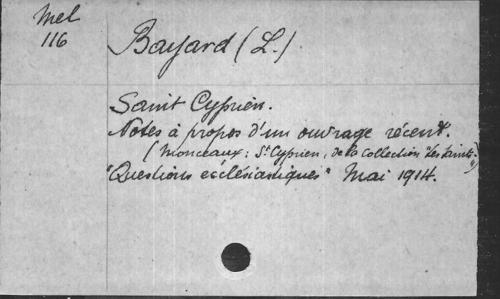 Mel
116
Bayard (L.)
Saint Cyprien.
Notes à propos d'un ouvrage récent.
(Monceaux : St Cyprien, de la collection "Les Saints")
"Questions ecclésiastiques" Mai 1914.